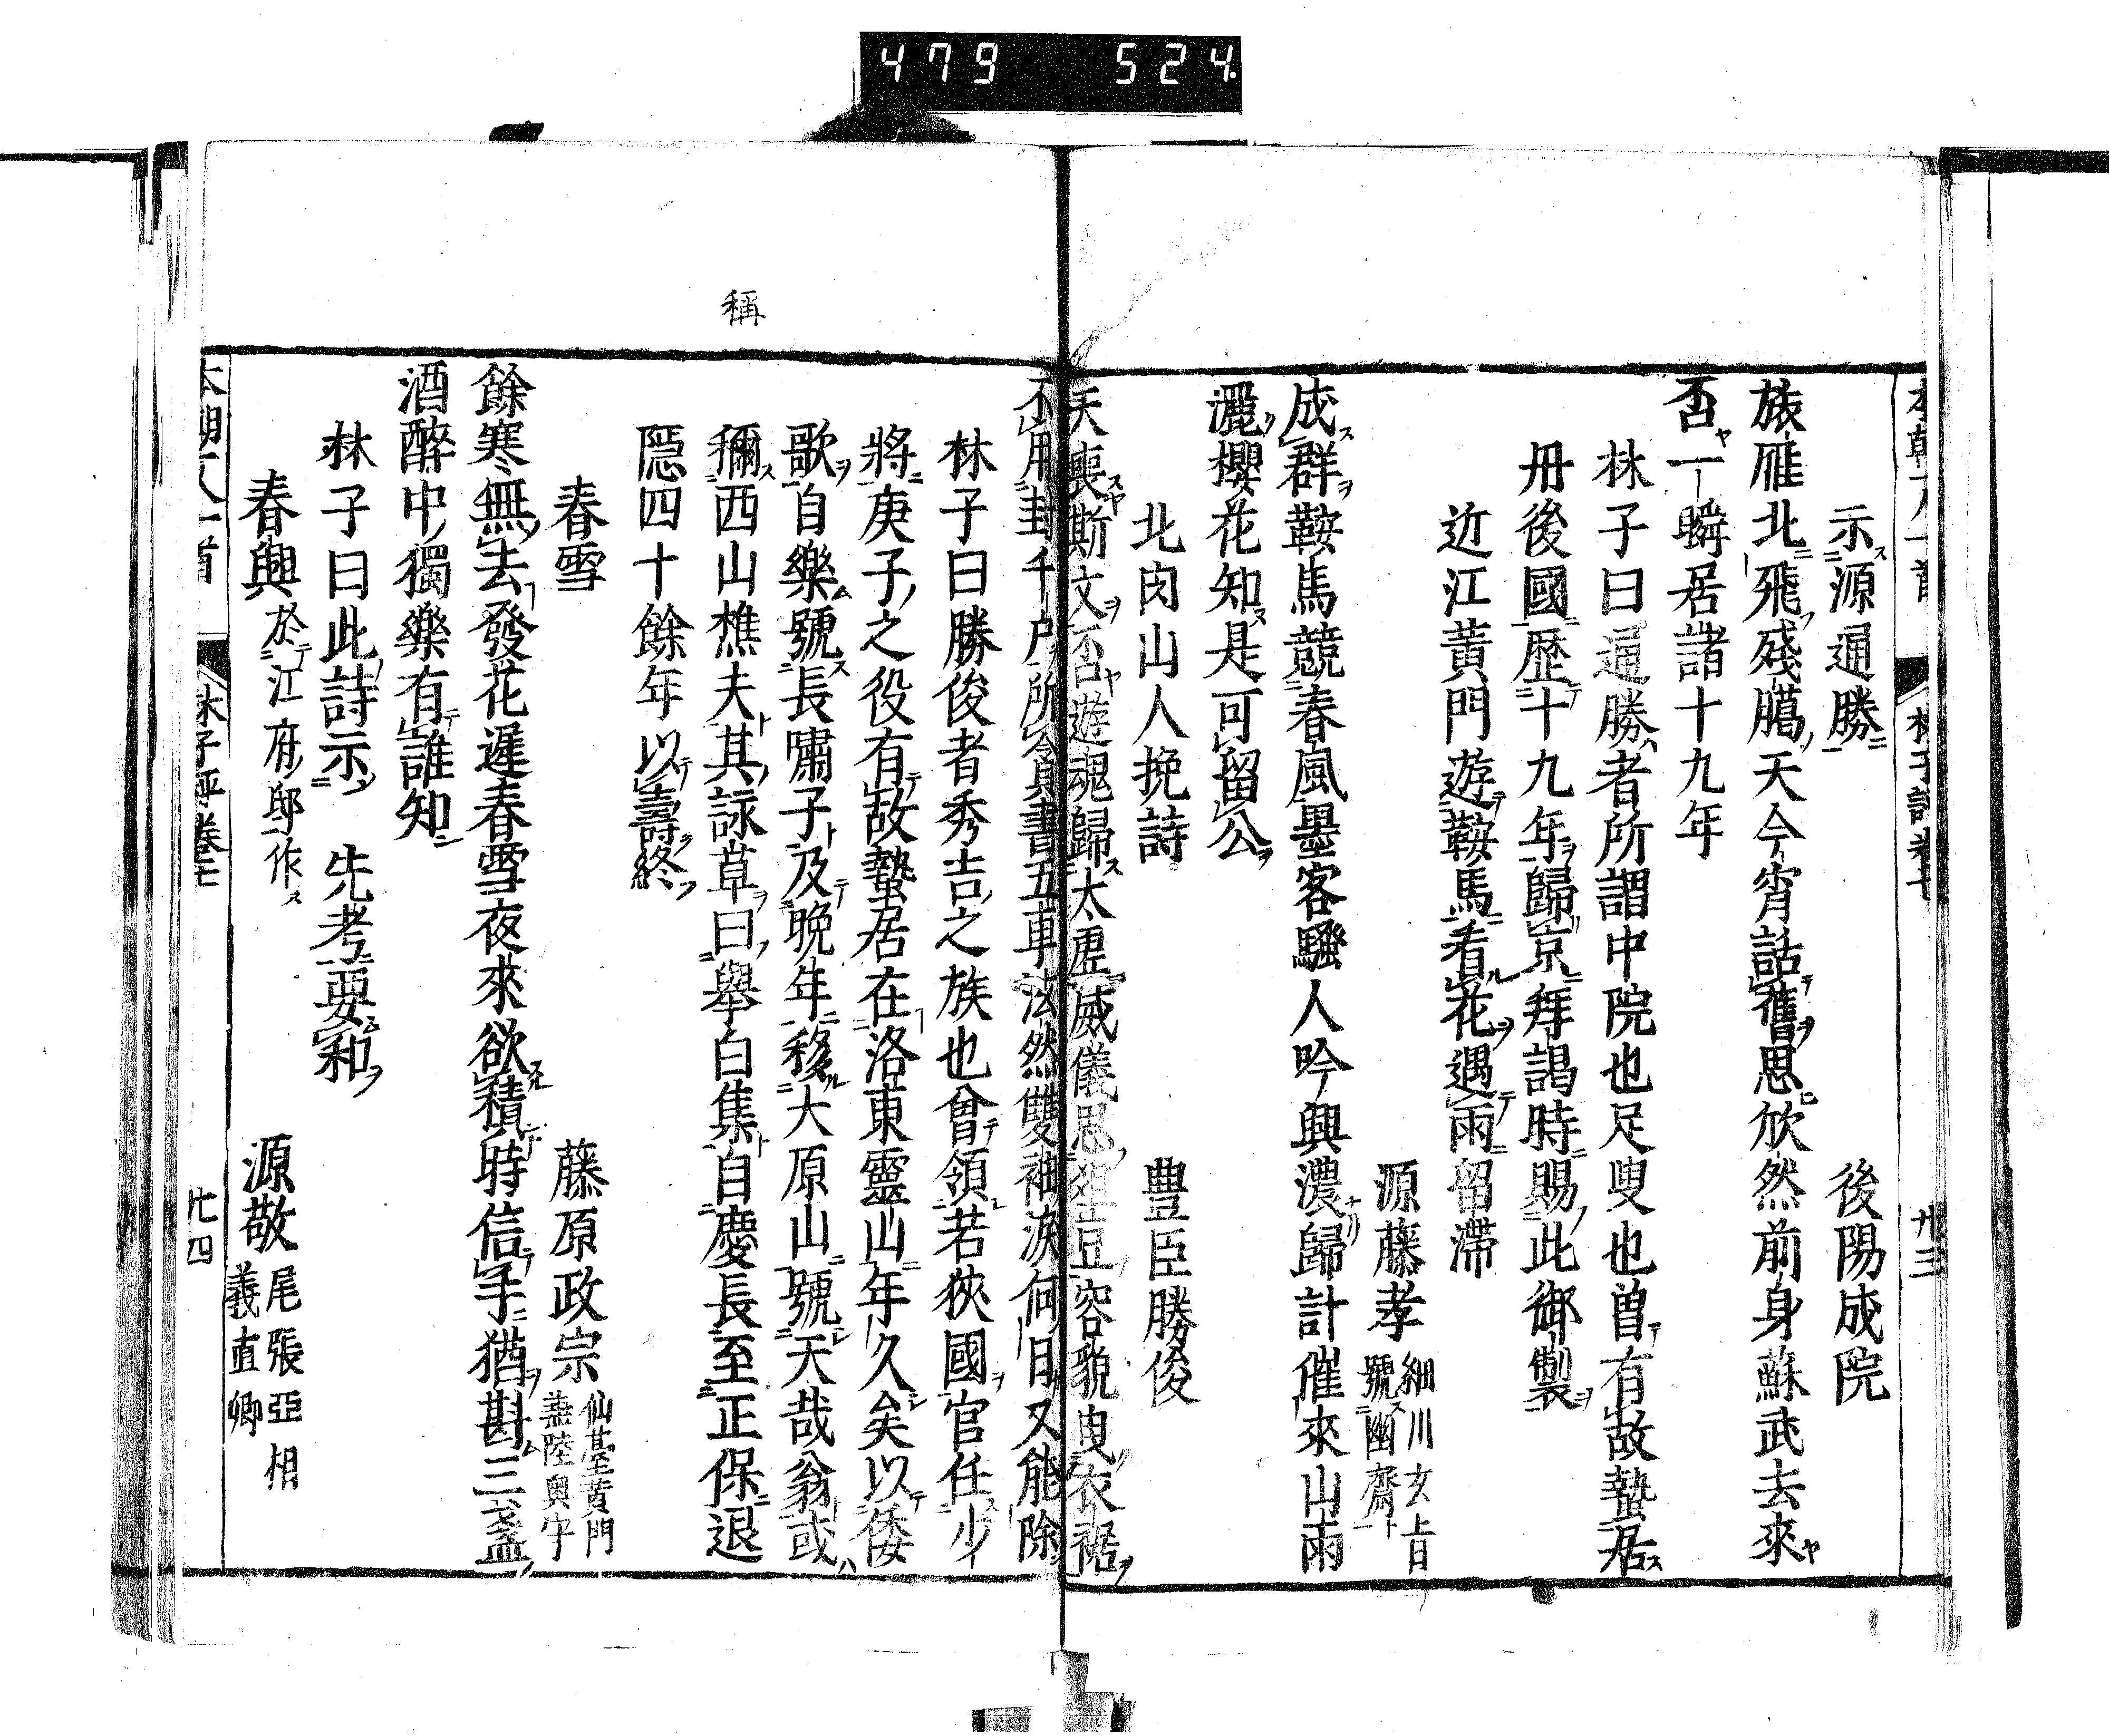 479 524
示源通勝 後陽成院
旅雁北飛殘臈天今宵話舊思欣然前身蘇武去來
否一瞬居諸十九年
林子曰通勝者所謂中院也足叟也曽有故蟄居
丹後國歴十九年歸京拜謁時賜此御製
近江黃門遊鞍馬看花遇雨留滯
源藤孝 細川玄旨
號幽齋
成群鞍馬競春風墨客騷人吟興濃歸計催來山雨
灑櫻花知是可留公
北肉山人挽詩 豐臣勝俊
天喪斯文否遊魂歸太虛威儀思俎豆容貌曳衣裾
不用封千戶所貪書五車泫然雙袖淚何日又能除
林子曰勝俊者秀吉之族也曾領若狹國官任少
將庚子之役有故蟄居在洛東靈山年久矣以倭
歌自樂號長嘯子及晚年移大原山號天哉翁或
稱
稱西山樵夫其詠草曰舉白集自慶長至正保退
隱四十餘年以壽終
春雪 藤原政宗 仙臺黃門
兼陸奧守
餘寒無去發花遲春雪夜來欲積時信手猶斟三盞
酒醉中獨樂有誰知
林子曰此詩示 先考要和
春興 於江府邸作 源敬 尾張亞相
義直卿
本朝一人一首 林子評卷七 廿四